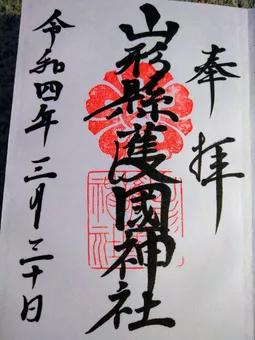 奉拝
山形縣護國神社
令和四年三月三十日